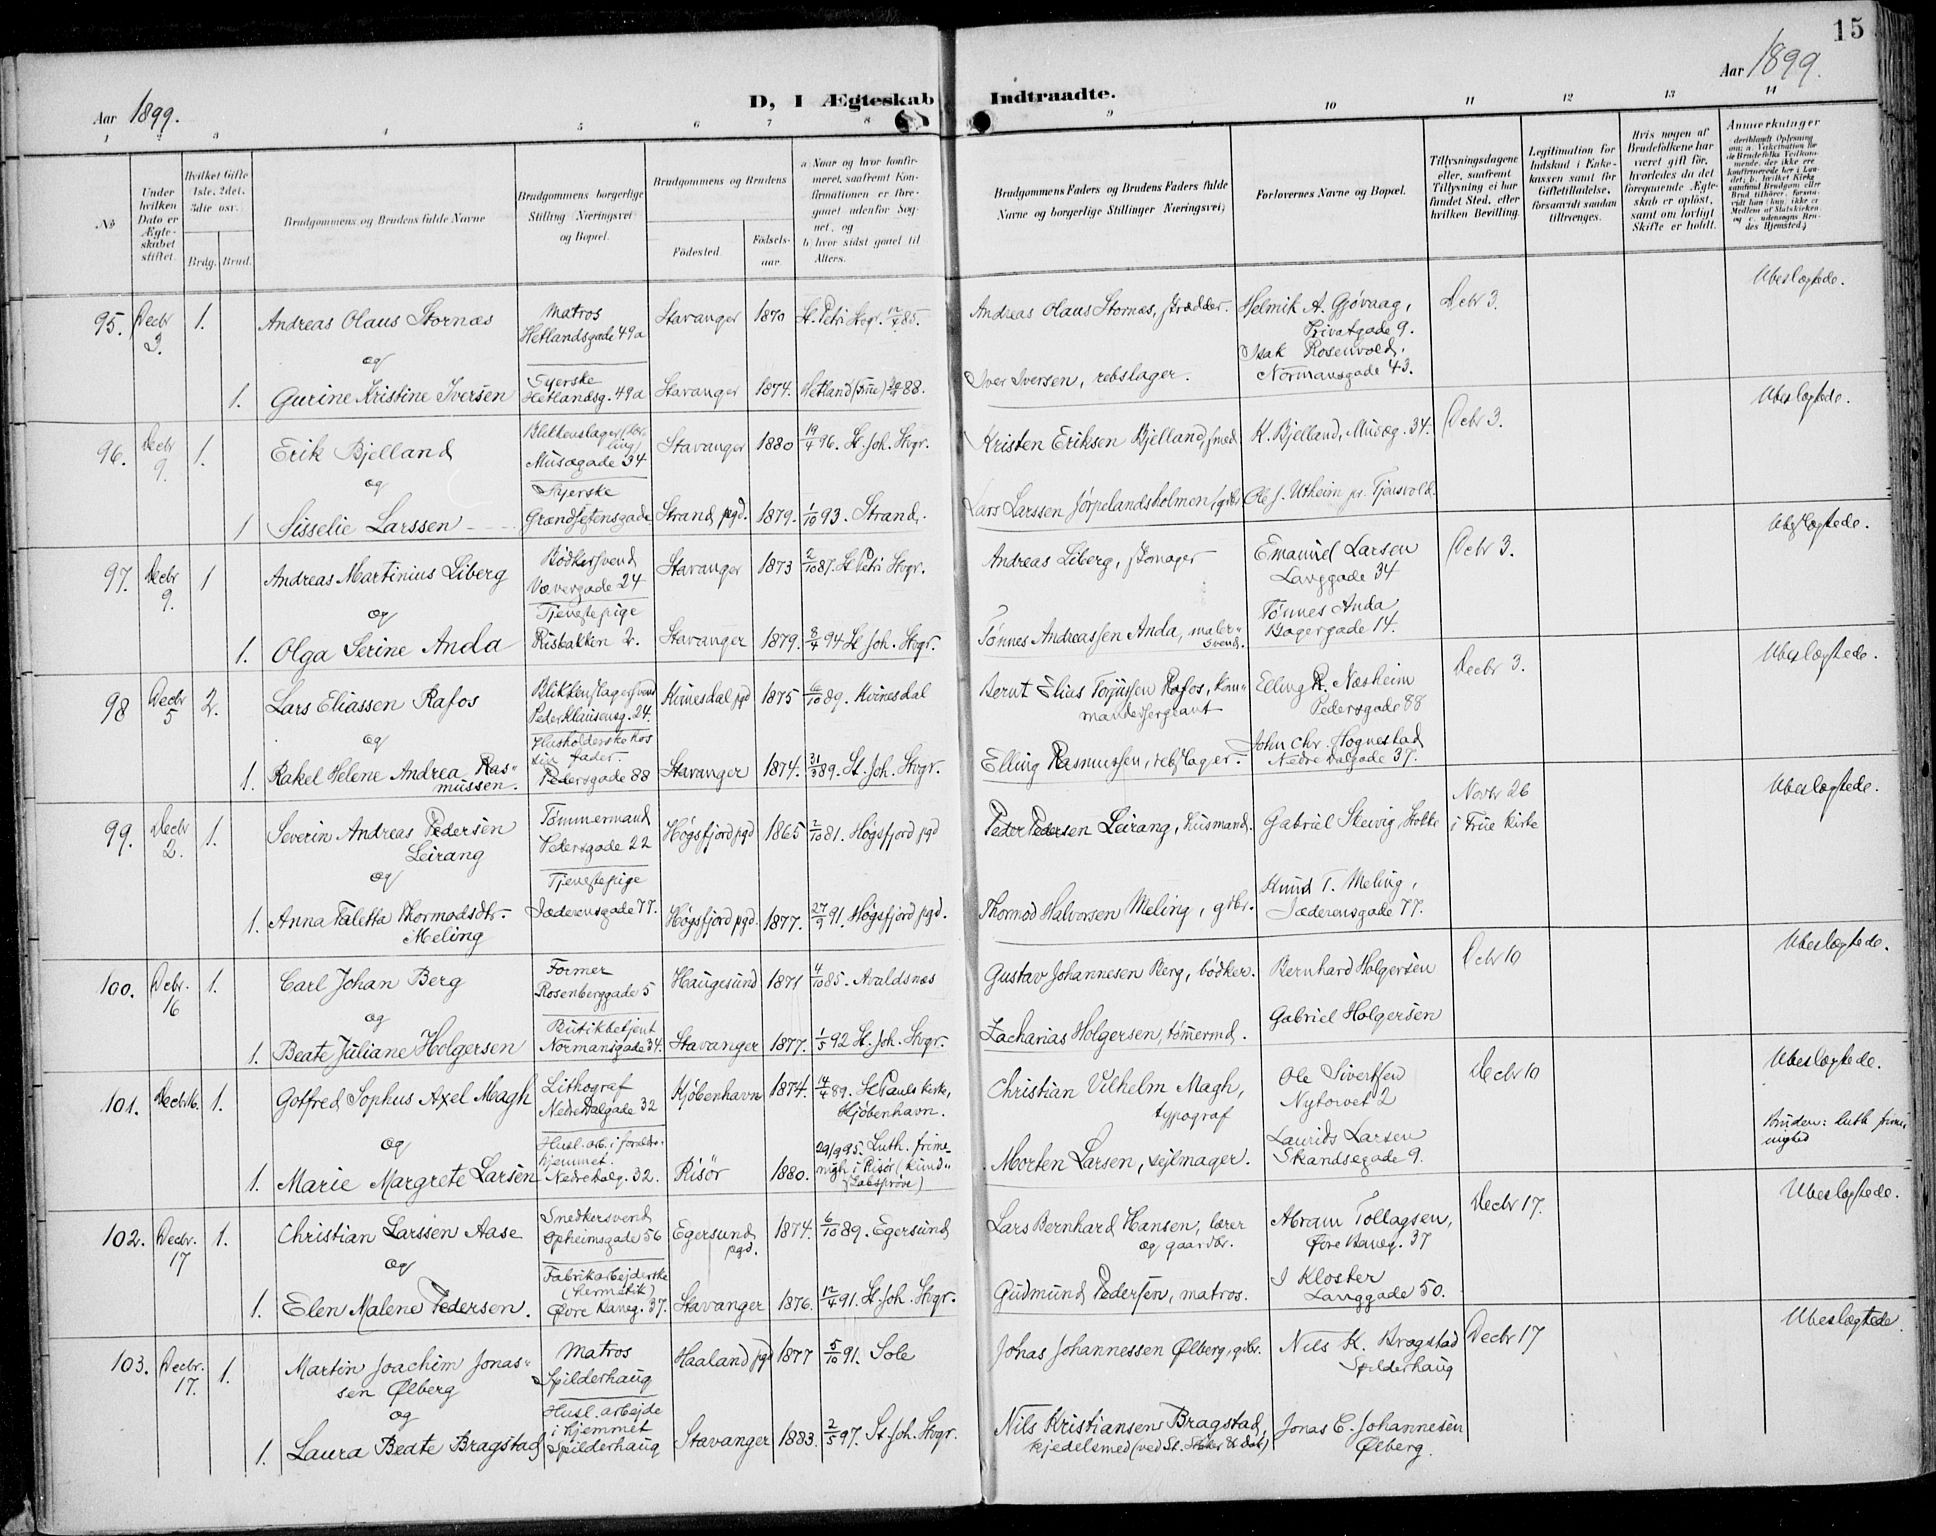 15
Aar 1899.
Aar 1899.
D, I Ægteskab Indtraadte.
1 2 3 4 5 6 7 8 9 10 11 12 13 14
No
Under hvilken Dato er Ægteskabet stiftet.
Hvilket Gifte 1ste, 2det, 3die osv.
Brdg. Brud.
Brudgommens og Brudens fulde Navne
Brudgommens borgerlige Stilling Næringsvei og Bopæl.
Brudgommens og Brudens
Födested. Födselsaar.
a. Naar og hvor konfirmeret, saafremt Konfirmationen er foregaaet udenfor Sognet, og
b. hvor sidst gaaet til Alters.
Brudgommens Faders og Brudens Faders fulde Navne og borgerlige Stillinger Næringsvei,
Forlovernes Navne og Bopæl.
Tillysningsdagene eller, saafremt Tillysning ei har fundet Sted, efter hvilken Bevilling.
Legitimation for Indskud i Enkekassen samt for Giftetilladelse, forsaavidt saadan tiltrænges.
Hvis nogen af Brudefolkene har været gift för, hvorledes da det foregaaende Ægteskab er oplöst, samt om lovligt Skifte er holdt.
Anmærkninger
95. Decbr 3. 1. Andreas Olaus Stornæs Matros Hetlandsgade 49a Stavanger 1870 St. Petri Stvgr. 12/4 85. Andreas Olaus Stornæs, skrædder. Helmik A. Gjövaag, Privatgade 9. Decbr 3. Ubeslægtede.
og
1. Gurine Kristine Iversen Syerske Hetlandsg. 49a Stavanger 1874. Hetland (Frue) 88. Iver Iversen, rebslager. Isak Rosenvold, Normansgade 43.
96. Decbr 9. 1. Erik Bjelland Musægade 34 Stavanger 1880 19/4 96. St. Joh. Stvgr. Kristen Eriksen Bjelland, smed K. Bjelland, Musæg. 34. Decbr 3. Ubeslægtede.
og
1 Sisselie Larssen Syerske Strand pgd. 1879. 1/10 93. Strand. Lars Larssen Jørpelandsholmen, grbr. Ole J. Utheim pr. Tjensvold.
97. Decbr 9. 1 Andreas Martinius Liberg Bödkersvend Vævergade 24 Stavanger 1873 2/10 87. St. Petri Stvgr. Andreas Liberg, skomager Emanuel Larsen Langgade 34 Decbr 3. Ubeslægtede.
og
1. Olga Serine Anda Tjenestepige Risbakken 2. Stavanger 1879. 8/4 94 St. Joh. Stvgr. Tönnes Andreassen Anda, malersvend. Tönnes Anda Bagergade 14.
98 Decbr 5 2. Lars Eliassen Rafos Blikkenslagersvend Peder Klausensg. 24. Kvinesdal pgd 1875 6/10 89. Kvinesdal Bernt Elias Torjussen Rafos, kommandersergeant Elling R. Næsheim Pedersgade 88 Decbr 3. Ubeslægtede.
og
1. Rakel Helene Andrea Rasmussen. Husholderske hos sin fader. Pedersgade 88 Stavanger 1874. 31/3 89. St. Joh. Stvgr. Elling Rasmussen, rebslager. John Chr. Hognestad Nedre Dalgade 37.
99. Decbr 2. 1. Severin Andreas Pedersen Leirang Tömmermand Pedersgade 22 Högsfjord pgd 1865 2/10 81. Högsfjord pgd Peder Pedersen Leirang, husmand. Gabriel Skeivig, Novbr 26 i Frue kirke Ubeslægtede.
og
1. Anna Taletta Thormodsdtr. Meling Tjenestepige Jæderensgade 77. Högsfjord pgd. 1877. 27/9 91. Högsfjord pgd. Thormod Halvorsen Meling, grbr. Knud T. Meling, Jæderensgade 77.
100. Decbr. 16 1. Carl Johan Berg Former Rosenberggade 5 Haugesund 1871 4/10 85. Avaldsnæs Gustav Johannesen Berg, bödker. Bernhard Holgersen Decbr 10 Ubeslægtede.
og
1. Beate Juliane Holgersen Butikbetjent Normansgade 34. Stavanger 1877. 1/5 92 St. Joh. Stvgr. Zacharias Holgersen, tömermd. Gabriel Holgersen
101. Decbr 16. 1. Gotfred Sophus Axel Magh Lithograf Nedre Dalgade 32 Kjöbenhavn 1874. 14/4 89. St Pauls kirke, Kjöbenhavn. Christian Vilhelm Magh, typograf Ole Sivertsen Nytorvet 2 Decbr 10 Ubeslægtede.
Bruden: luth. frimenighed
og
1. Marie Margrete Larsen Husl. arb. i forældrehjemmet. Nedre Dalg. 32. Risör 1880. 29/9 95. Luth. frimenigh. i Risör (kundskabsprøve) Morten Larsen, sejlmager. Laurids Larsen Skandsegade 9.
102. Decbr. 17 1. Christian Larssen Aase Snedkersvend Opheimsgade 56 Egersund pgd. 1874. 6/10 89. Egersund Lars Bernhard Hansen, lærer og gaardbr. Abram Tollagsen, Øvre Baneg. 37 Decbr 17. Ubeslægtede.
og
1. Elen Malene Pedersen. Fabrikarbejderske (hermetik) Øvre Baneg. 37. Stavanger 1876. 12/4 91. St. Joh. Stvgr. Gudmund Pedersen, matros. J Kloster Langgade 50.
103. Decbr. 17. 1. Martin Joachim Jonassen Ølberg Matros Spilderhaug Haaland pgd 1877 5/10 91. Sole Jonas Johannessen Ølberg, grbr. Nils K. Bragstad Spilderhaug Decbr 17 Ubeslægtede
og
1. Laura Beate Bragstad Husl. arbejde i hjemmet Spilderhaug Stavanger 1883. 2/5 97. St. Joh. Stvgr. Nils Kristiansen Bragstad, kjedelsmed Jonas C. Johannesen Ølberg.